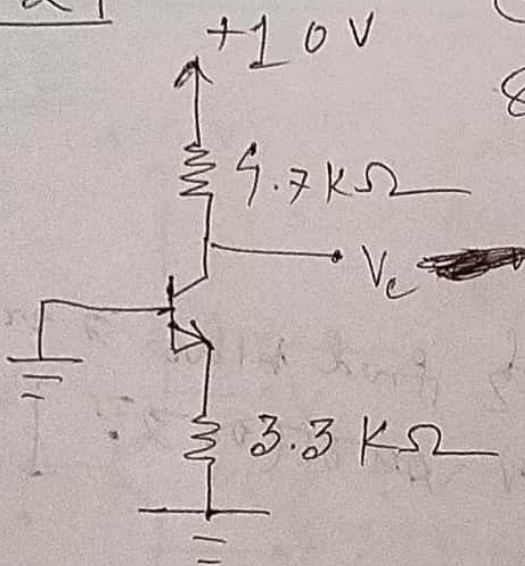 +10V
4.7KΩ
Vc
3.3KΩ